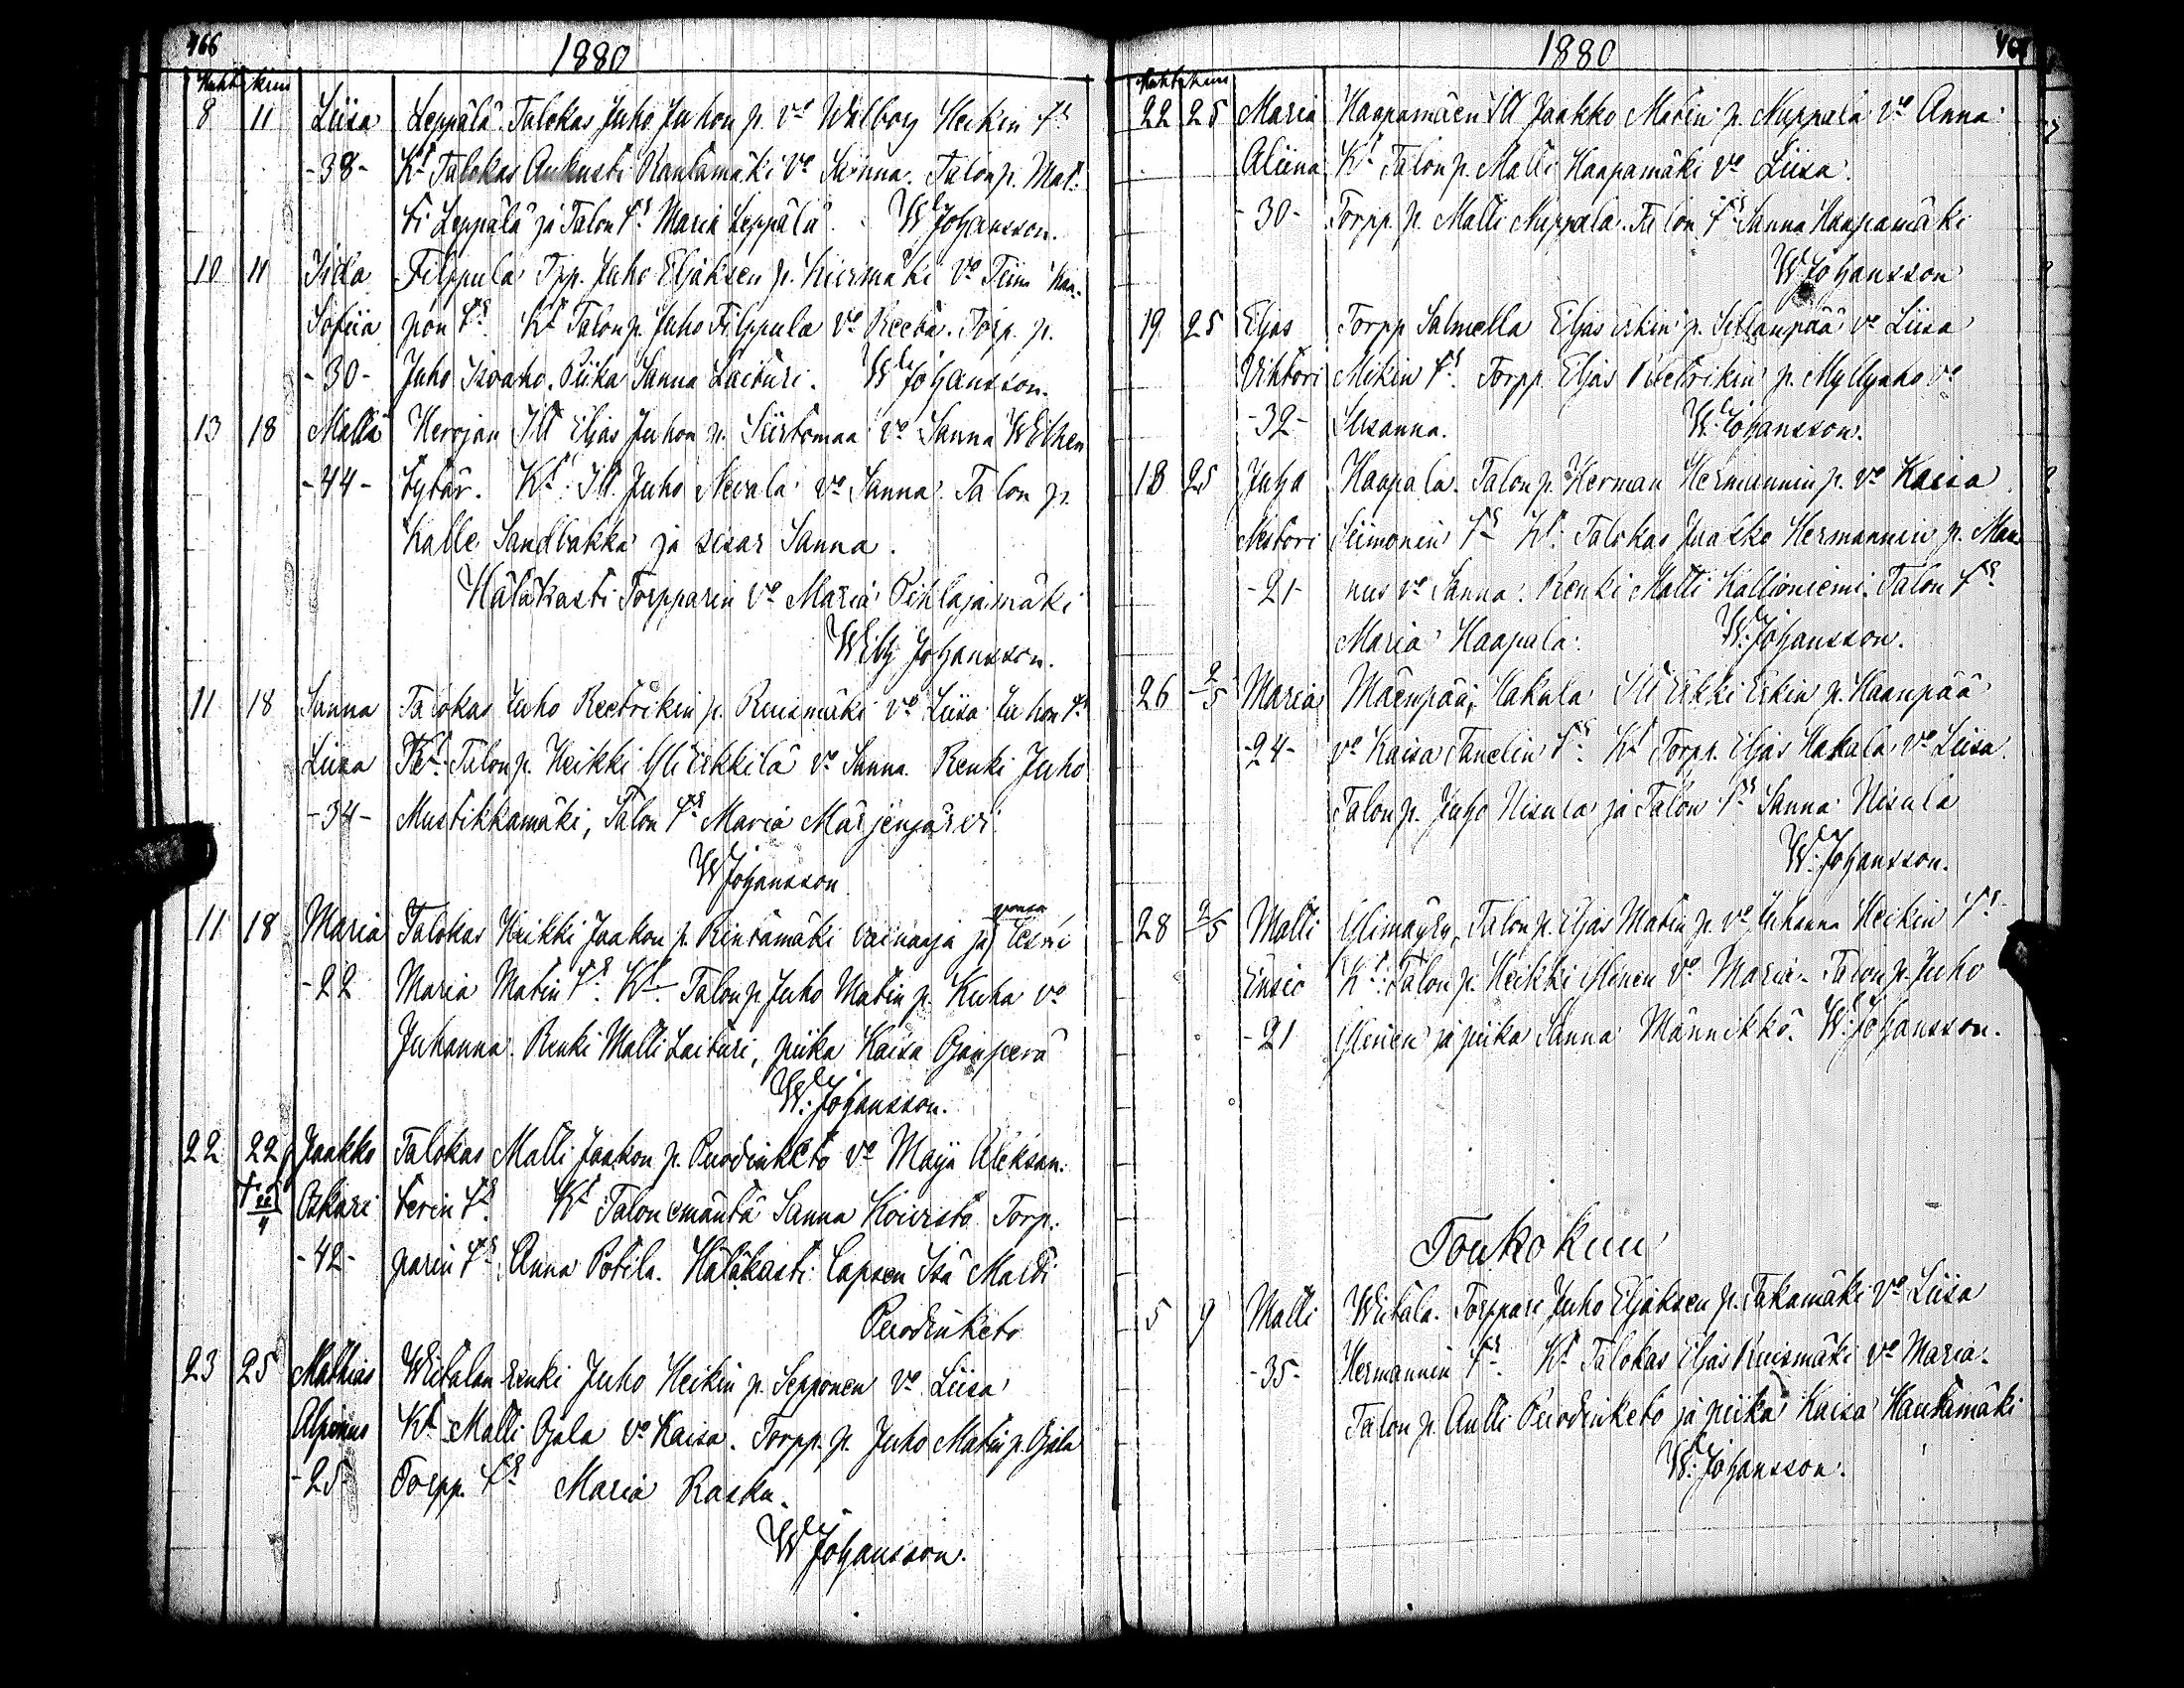 466
1880
Huht kuu
8 11 Liisa Leppälä. Talokas Juho Juhon p. vo Walborg Heikin tr
-38- Kt Talokas Aukusti Rantamäki vo Sanna. Talon p. Mat-
ti Leppälä ja Talon tr Maria Leppälä. W Johansson.
10 11 Iida Filppula Tpp. Juho Eljaksen p. Hiermäki vo Tiina Kaa-
Sofiia pon tr Kt Talon p. Juho Filppula vo Reeta. Torp. p.
-30- Juho Isoaho. Piika Sanna Laituri. W Johansson.
13 18 Matti Herojan Itl Eljas Juhon p. Siirtomaa vo Sanna Wilhen
-44- tytär. Kt Itl. Juho Nevala vo Sanna. Talon p.
Kalle Sandbakka ja sisar Sanna.
Hätäkasti Torpparin vo Maria Pihlajamäki
Wilh Johansson.
11 18 Sanna Talokas Juho Reetrikin p. Ruismäki vo Liisa Juhon tr
Liisa Kt Talon p. Heikki Yli Erkkilä vo Sanna. Renki Juho
-34- Mustikkamäki, Talon tr Maria Märjenjärvi
W Johansson
11 18 Maria Talokas Heikki Jaakon p. Rintamäki vainaaja ja leski
-22 Maria Matin tr. Kt Talon p. Juho Matin p. Kuha vo
Juhanna. Renki Matti Laituri, piika Kaisa Ojanperä
W. Johansson.
22 22 Jaakko Talokas Matti Jaakon p. Puodinketo vo Maija Aleksan-
† 22/4 Oskari terin tr. Kt Talonemäntä Sanna Koivisto Torp-
-42- parin tr. Anna Potila. Hätäkasti Lapsen Isä Matti
Puodinketo
23 25 Mathias Wiitalan renki Juho Heikin p. Sepponen vo Liisa
Alfonus Kt Matti Ojala vo Kaisa. Torpp. p. Juho Matin p. Ojala
-25- Torpp. tr Maria Rasku.
W Johansson.
1880
467
Huhtikuu
22 25 Maria Haapamäen Itl Jaakko Matin p. Nuppala vo Anna
Aliina Kt Talon p. Matti Haapamäki vo Liisa.
-30- Torpp. p. Matti Nuppala. Talon tr Sanna Haapamäki
W Johansson
19 25 Eljas Torpp Salmella Eljas Erkin p. Sillanpää vo Liisa
Vihtori Mikin tr. Torpp. Eljas Reetrikin p. Myllyaho vo
-32- Susanna. W. Johansson.
18 25 Juha Haapala. Talon p. Herman Hermannin p. vo Kaisa
Nestori Siimonin tr Kt. Talokas Jaakko Hermannin p. Man-
-21- nus vo Sanna. Renki Matti Kallioniemi. Talon tr
Maria Haapala. W. Johansson.
26 2/5 Maria Mäenpää, Hakala Itl Erkki Erkin p. Haanpää
-24- vo Kaisa Tanelin tr. Kt Torpp. Eljas Hakala vo Liisa.
Talon p. Juho Nisula ja Talon tr Sanna Nisula
W. Johansson.
28 2/5 Matti Ylimäyry, Talon p. Eljas Matin p. vo Juhanna Heikin tr
Ensio Kt. Talon p. Heikki Ylinen vo Maria. Talon p. Juho
-21 Ylinen ja piika Sanna Männikkö. W. Johansson.
Toukokuu
5 9 Matti Wiitala. Torppari Juho Eljaksen p. Takamäki vo Liisa
-35- Hermannin tr. Kt Talokas Eljas Ruismäki vo Maria.
Talon p. Antti Puodinketo ja piika Kaisa Hautamäki
W. Johansson.